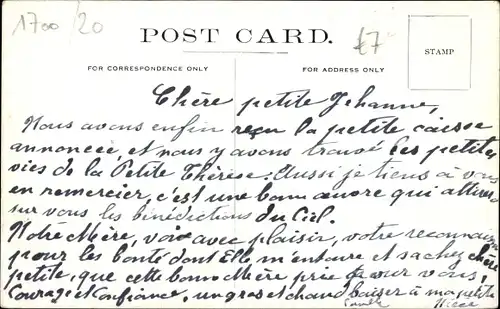 1700/20
£7
POST CARD.
STAMP
FOR CORRESPONDENCE ONLY
FOR ADDRESS ONLY
Chère petite Jehanne,
Nous avons enfin reçu la petite caisse
annoncée, et nous y avons trouvé les petites
vies de la Petite Thérèse. Aussi je tiens à vous
en remercier, c'est une bonne œuvre qui attirera
sur vous les bénédictions du Ciel.
Notre Mère, voit avec plaisir, votre reconnais
pour les bonté dont Elle m'entoure et sachez chère
petite, que cette bonne Mère prie pour vous,
Courage et Confiance, un gros et chaud baiser à ma petite
Nièce